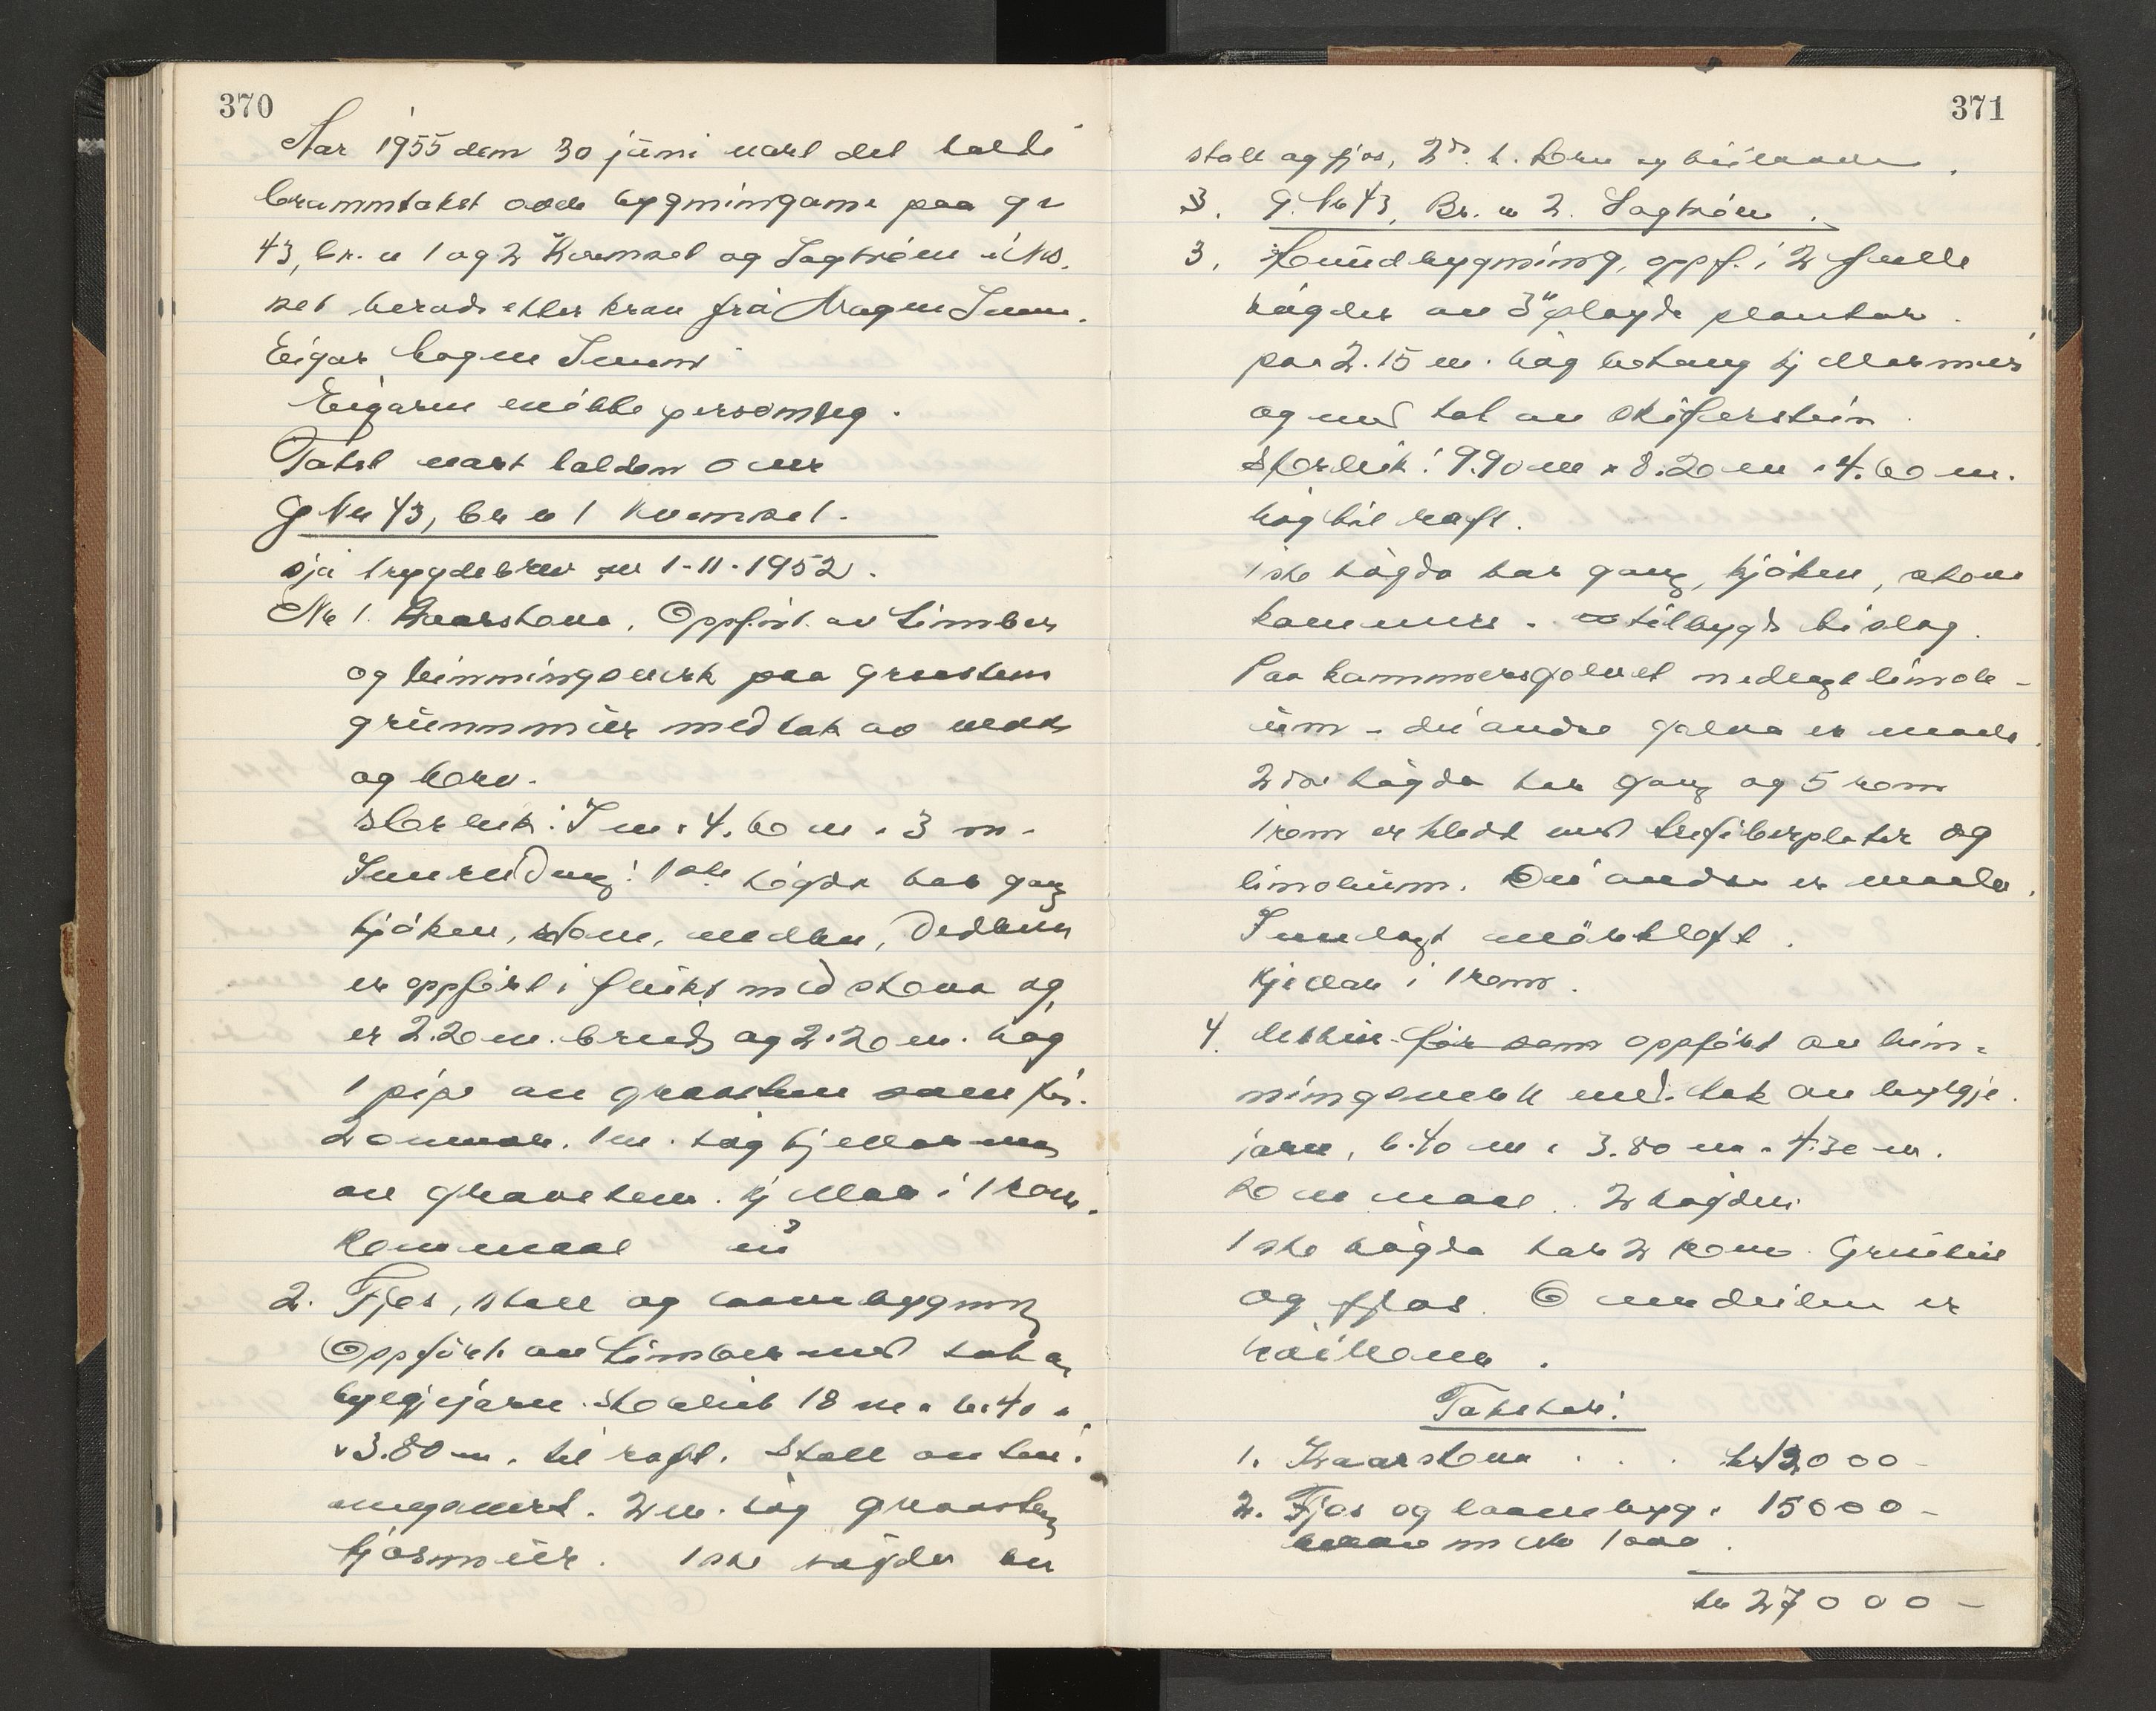 370
Aar 1955 den 30 juni vart det halde
branntakst over bygningane paa gr
43, br. n 1 og 2 Kvamsøl og Sagtrøen i
herad etter krav frå Magne
Eigar Magne
Eigaren møtte personleg.
Takst vart halden over
G Nr 43, br n 1 Kvamsøl.
sjå trygdebrev av 1-11-1952.
No 1. Vaarstova. Oppfört av timber
og binningsverk paa graastein
grunnmur med tak av
og torv.
storleik: 7 m x 4.60 m x 3 m.
Innreidning: 1ste högda har gang
kjöken, stove,
er oppfört i flukt med stova og
er 2.20 m. breid og 2.20 m. høg
1 pipe av graastein
2 omnar. 1 m. høg kjellarmur
av graastein. Kjellar i 1 rom.
Rommaal m3
2. Fjøs, stall og laavebygning
Oppfört av timber med tak av
bylgjejarn. Storleik 18 m x 6.40 x
x 3.80 m. til raft. Stall av bin-
ningsverk. 2 m. høg graastein
fjösmur. 1ste högda er
371
stall og fjøs, 2dr. h.
3. G. Nr 43, Br. n 2. Sagtrøen.
3. bygning, oppf. i 2 fulle
högder av 3" pløygde plankar
paa 2.15 m. høg betong kjellarmur
og med tak av skiferstein.
Storleik: 9.90 m x 8.20 m x 4.60 m.
høg til raft.
1ste högda har gang, kjöken, stove
kammers. tilbygd bislag.
Paa kammersgolvet nedlagt linole-
um - dei andre golva er maala.
2dre högda har gang og 5 rom
1 rom er kledt med trefiberplater og
linoleum. Dei andre er maala.
Innlagt mörkloft.
Kjellar i 1 rom.
4. som oppfört av bin-
ningsverk med tak av bylgje-
jarn, 6.40 m x 3.80 m x 4.30 m.
Rommaal . 2 högder
1ste högda har 2 rom.
og fjøs. Ovandeilen er
Takstar:
1. Vaarstova . . . kr 12000 -
2. Fjøs og laavebyg. 15000 -
1000.
kr 27000 -